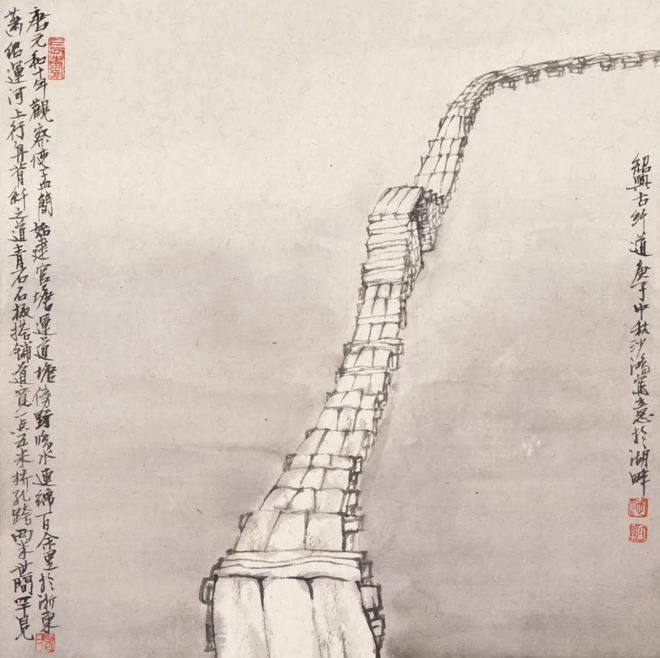 紹興古纤道庚子中秋沙鴻意於湖畔
唐元和十年觀察使孟簡始建官塘運道塘傍野臨水連綿百余里於浙東
蕭紹運河上行舟背纤之道青石石板搭鋪道寬一点五米橋孔跨两米世間罕見